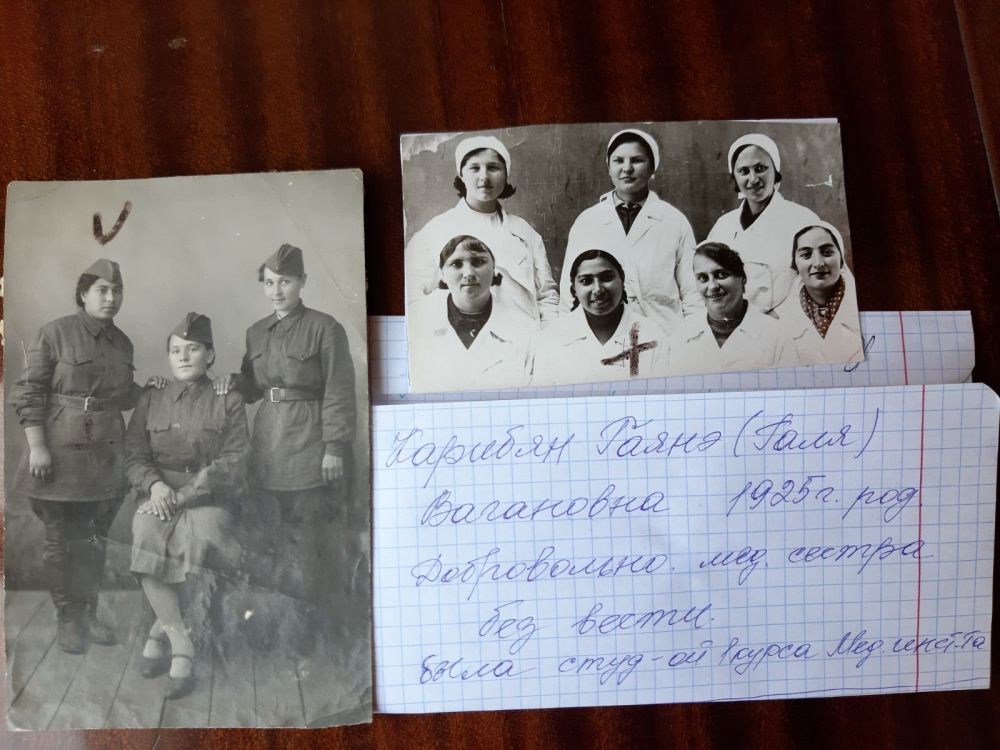 Карибян Гаянэ (Галя)
Вагановна 1925г. род
Добровольно. мед. сестра
без вести.
была студ-ой 1 курса Мед. инст-та